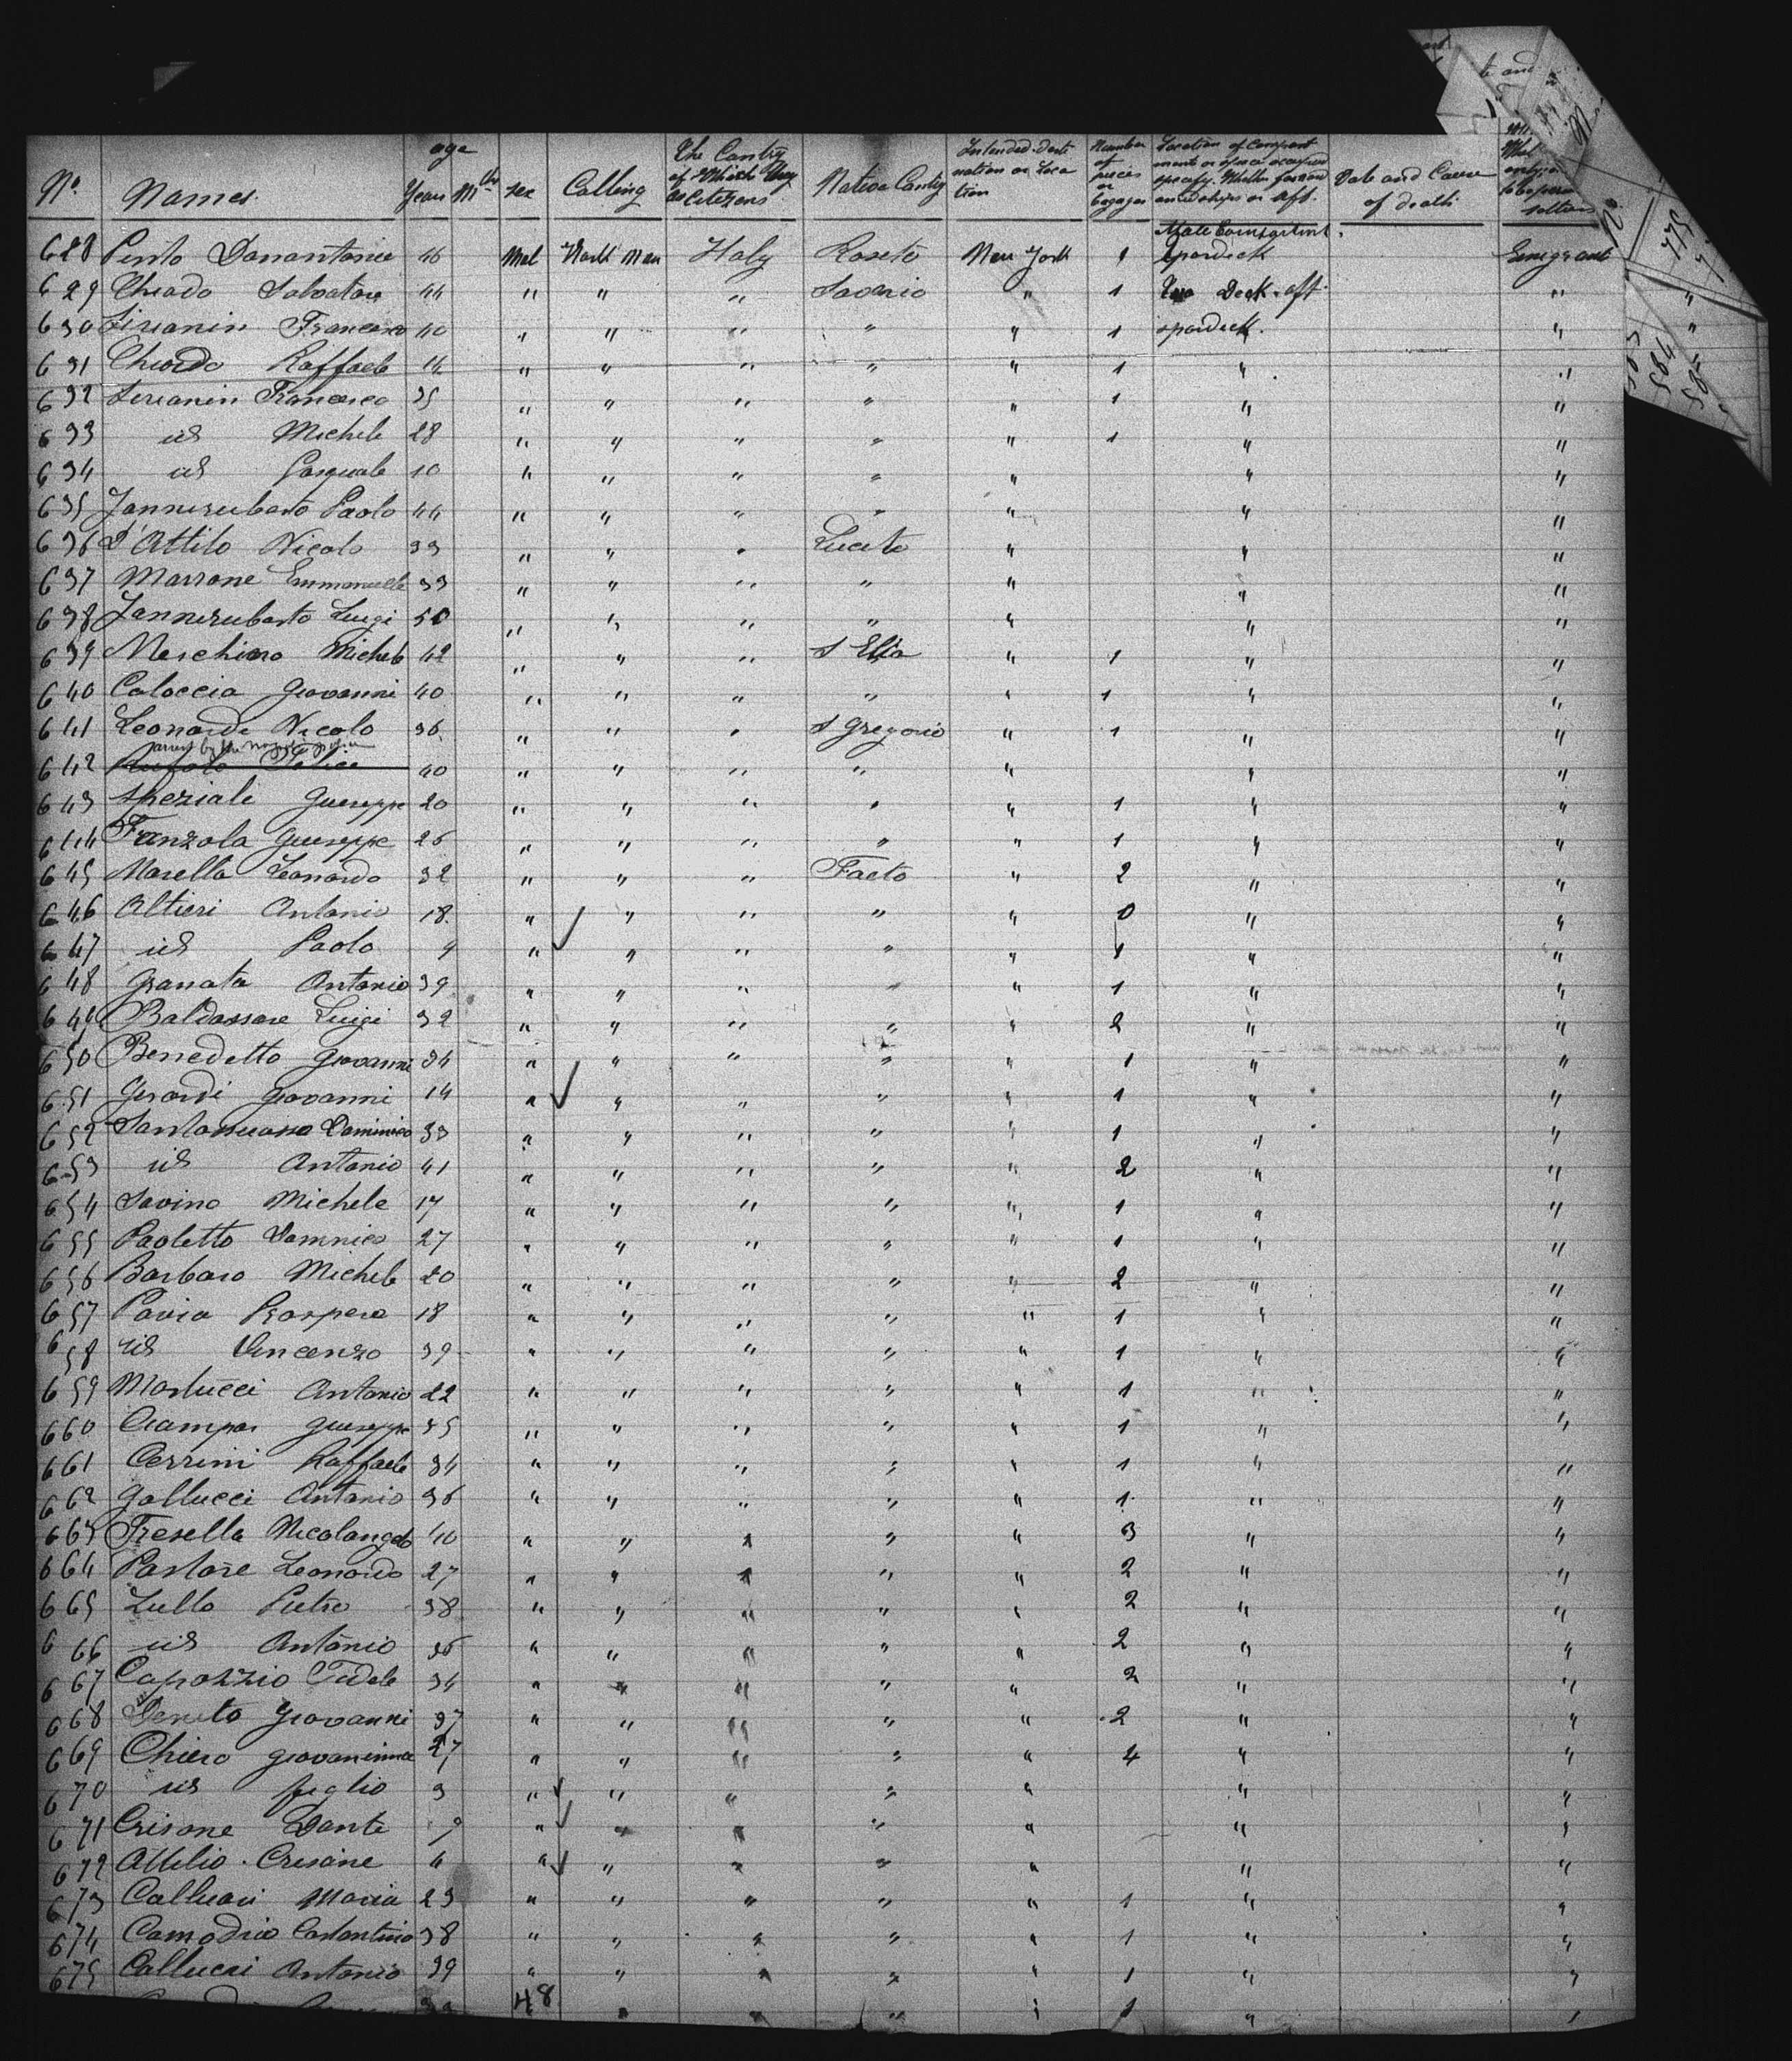 No. Names. age Years Mths sex Calling The Contry of Which they as Citezens Native Contry Intended desti nation or Loca tion Number of pieces or bagages Location of Compart ments or space occupied specify. Whether forward amidships or Aft. Date and Cause of death
628 Pinto Donantonio 46 Mal Work Man Italy Roseto New York 1 Male Compartment. spardeck Emigrant
629 Chiado Salvatore 44 " " " Saverio " 1 Deck aft "
630 Francesco 40 " " " " " 1 spardeck. "
631 Raffaele 14 " " " " " 1 " "
632 Francesco 35 " " " " " 1 " "
633 id Michele 28 " " " " " 1 " "
634 id Pasquale 10 " " " " " " "
635 Jannurubarto Paolo 44 " " " " " " "
636 D'Attilo Nicola 33 " " " Lucito " " "
637 Marrone Emmanuele 33 " " " " " " "
638 Jannurubarto Luigi 50 " " " " " " "
639 Meschiaro Michele 42 " " " S Elia " 1 " "
640 Coloccia Giovanni 40 " " " " " 1 " "
641 Leonardi Nicolo 36 " " " S Gregorio " 1 " "
642 Felice 40 " " " " " " "
643 Speziali Giuseppe 20 " " " " " 1 " "
644 Franzola Giuseppe 26 " " " " " 1 " "
645 Marella Leonardo 32 " " " Faeto " 2 " "
646 Altieri Antonio 18 " " " " " 0 " "
647 id Paolo 9 " " " " " 1 " "
648 Granata Antonio 39 " " " " " 1 " "
649 Baldassare Luigi 32 " " " " " 2 " "
650 Benedetto Giovanni 34 " " " " " 1 " "
651 Girardi Giovanni 14 " " " " " 1 " "
652 Dominico 33 " " " " " 1 " "
653 id Antonio 41 " " " " " 2 " "
654 Savino Michele 17 " " " " " 1 " "
655 Paoletto Domnico 27 " " " " " 1 " "
656 Barbaro Michele 20 " " " " " 2 " "
657 Pavia Prospero 18 " " " " " 1 " "
658 id Vincenzo 39 " " " " " 1 " "
659 Martucci Antonio 22 " " " " " 1 " "
660 Ciampa Giuseppe 35 " " " " " 1 " "
661 Cerrini Raffaele 34 " " " " " 1 " "
662 Gallucci Antonio 36 " " " " " 1 " "
663 Fresella Nicolangelo 40 " " " " " 3 " "
664 Pastore Leonardo 27 " " " " " 2 " "
665 Zullo Pietro 38 " " " " " 2 " "
666 id Antonio 36 " " " " " 2 " "
667 Capozzio Fidele 34 " " " " " 2 " "
668 Denito Giovanni 37 " " " " " 2 " "
669 Chiero Giovaninna 27 " " " " " 4 " "
670 id figlio 3 " " " " " " "
671 Crisone Dante 9 " " " " " " "
672 Attilio Crisone 4 " " " " " " "
673 Callucci Maria 23 " " " " " 1 " "
674 Camodrio Costantino 38 " " " " " 1 " "
675 Callucci Antonio 39 " " " " " 1 " "
48 " " " " 1 " "